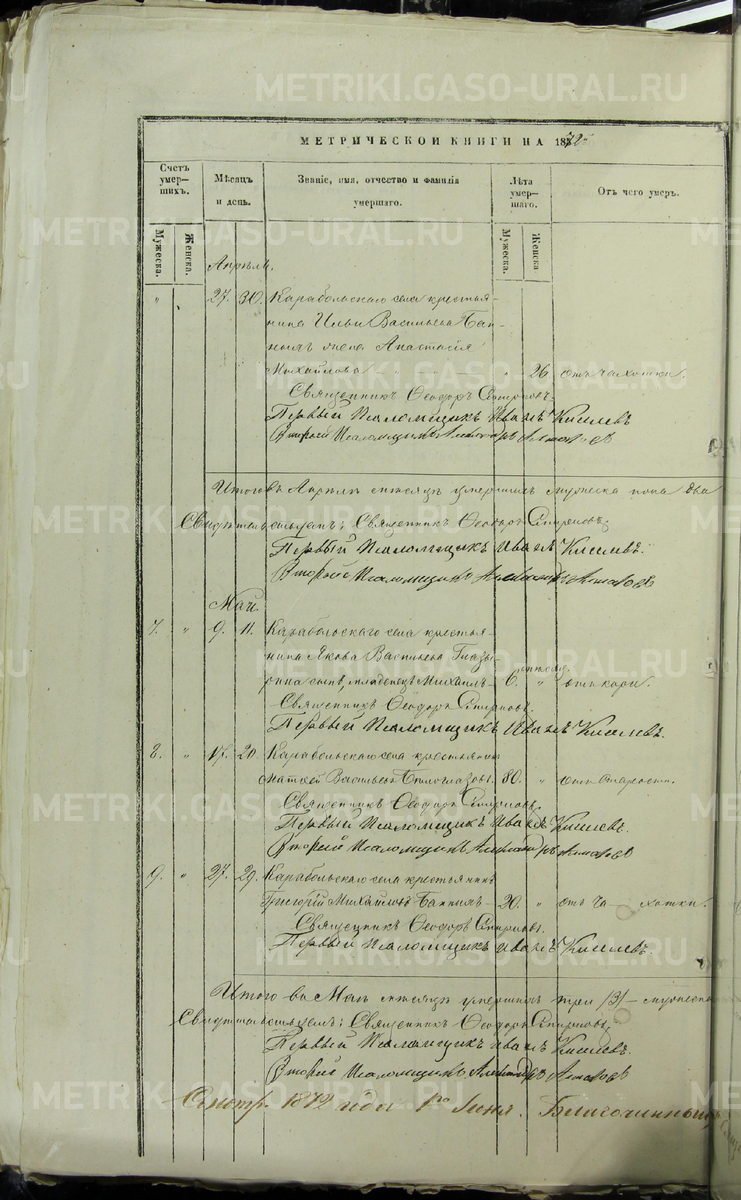 METRIKI.GASO-URAL.RU
МЕТРИЧЕСКОЙ КНИГИ НА 1872
Счетъ умер- шихъ.
Мѣсяцъ и день.
Званіе, имя, отчество и фамилія умершаго.
Лѣта умер- шаго.
Отъ чего умеръ.
Мужеска.
Женска.
Мужеска.
Женска.
Апрѣль.
" 27. 30. Карабольскаго села крестья-
нина Ильи Васильева
жена Анастасія
Михайлова " 26 отъ чахотки.
Священникъ Ѳеодоръ Смирновъ.
Первый Псаломщикъ Иванъ Киселевъ
Второй Псаломщикъ
Итого въ Апрѣлѣ мѣсяцѣ умершихъ мужеска пола два
Свидѣтельствуемъ: Священникъ Ѳеодоръ Смирновъ.
Первый Псаломщикъ Иванъ Киселевъ.
Второй Псаломщикъ
Май.
7. " 9. 11. Карабольскаго села крестья-
нина Якова Васильева Глазы-
рина сынъ, младенецъ Михаилъ 6. " отъ кори.
Священникъ Ѳеодоръ Смирновъ.
Первый Псаломщикъ Иванъ Киселевъ.
8. " 17. 20. Карабольскаго села крестьянинъ
Матѳей Васильевъ Бѣлоглазовъ. 80. " отъ старости.
Священникъ Ѳеодоръ Смирновъ.
Первый Псаломщикъ Иванъ Киселевъ.
Второй Псаломщикъ
9. " 27. 29. Карабольскаго села крестьянинъ
Григорій Михайловъ 20. " отъ ча- хотки.
Священникъ Ѳеодоръ Смирновъ.
Первый Псаломщикъ Иванъ Киселевъ.
Итого въ Маѣ мѣсяцѣ умершихъ три /3/ мужеска
Свидѣтельствуемъ: Священникъ Ѳеодоръ Смирновъ.
Первый Псаломщикъ Иванъ Киселевъ.
Второй Псаломщикъ
1872 года 1го Іюня. Благочинный